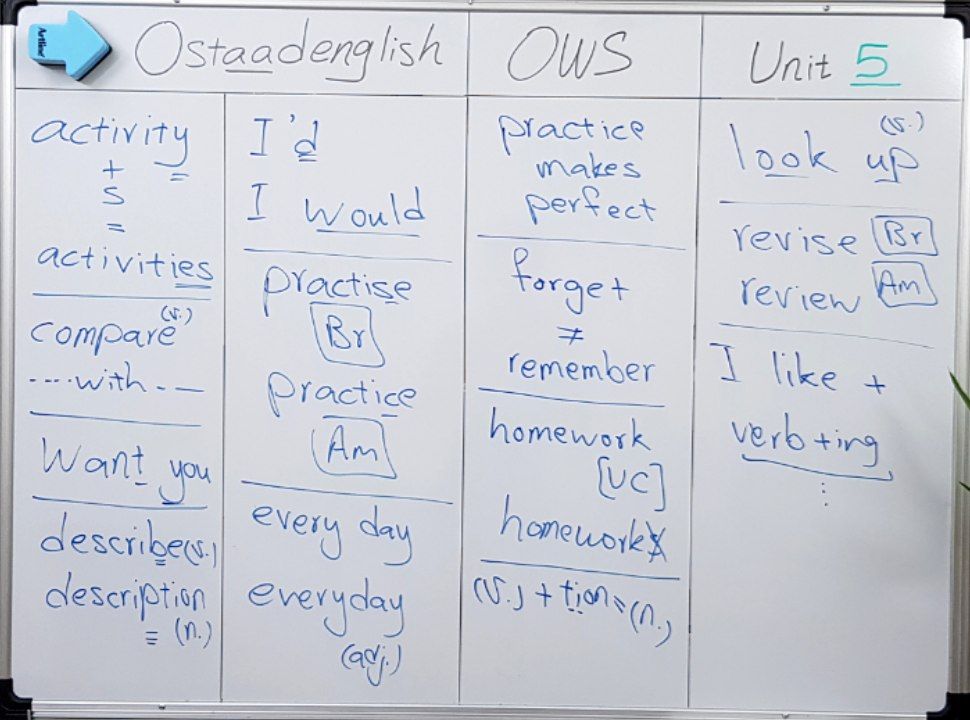 Artline
Ostaadenglish
OWS
Unit 5
activity
+
s
=
activities
compare (v.)
----with---
Want you
describe(v.)
description
(n.)
I'd
I would
practise
Br
practice
Am
every day
everyday
(adj.)
practice
makes
perfect
forget
≠
remember
homework
[UC]
homeworks
(v.) + tion = (n.)
(v.)
look up
revise Br
review Am
I like +
verb +ing
⋮